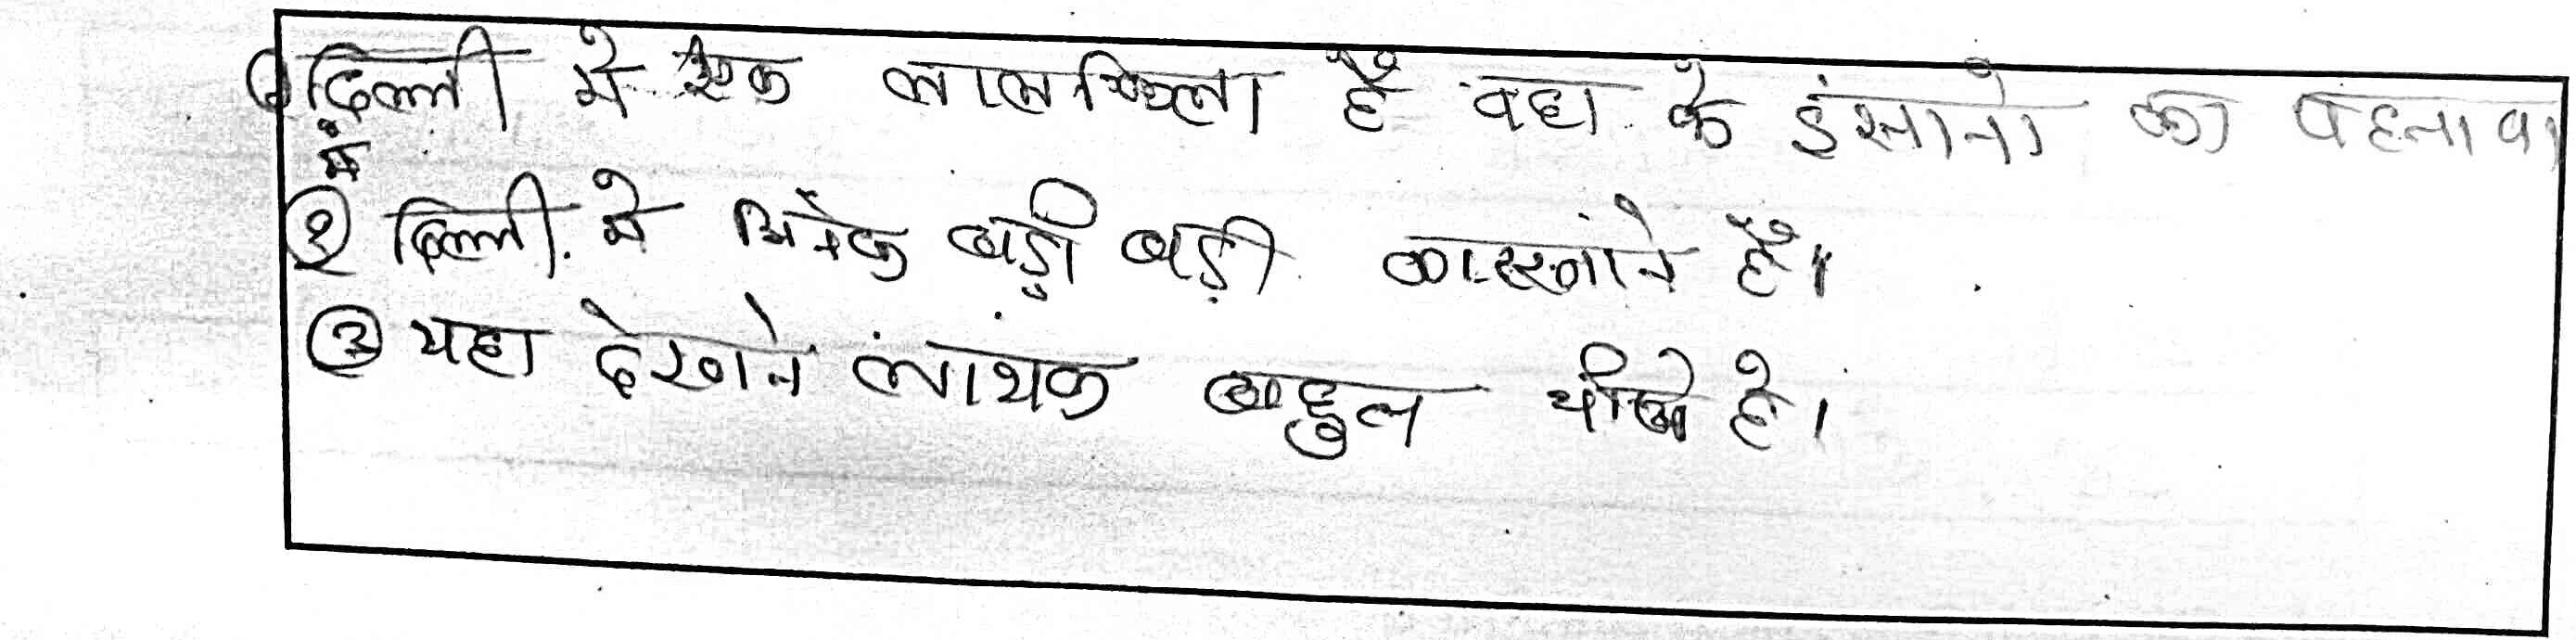 ① दिल्ली मे एक लालकिला है वहा के इंसानो का पहनावा
में
② दिल्ली मे अनेक बड़ी बड़ी कारखाने हैं।
③ यहा देखने लायक बहुत चीजे है।